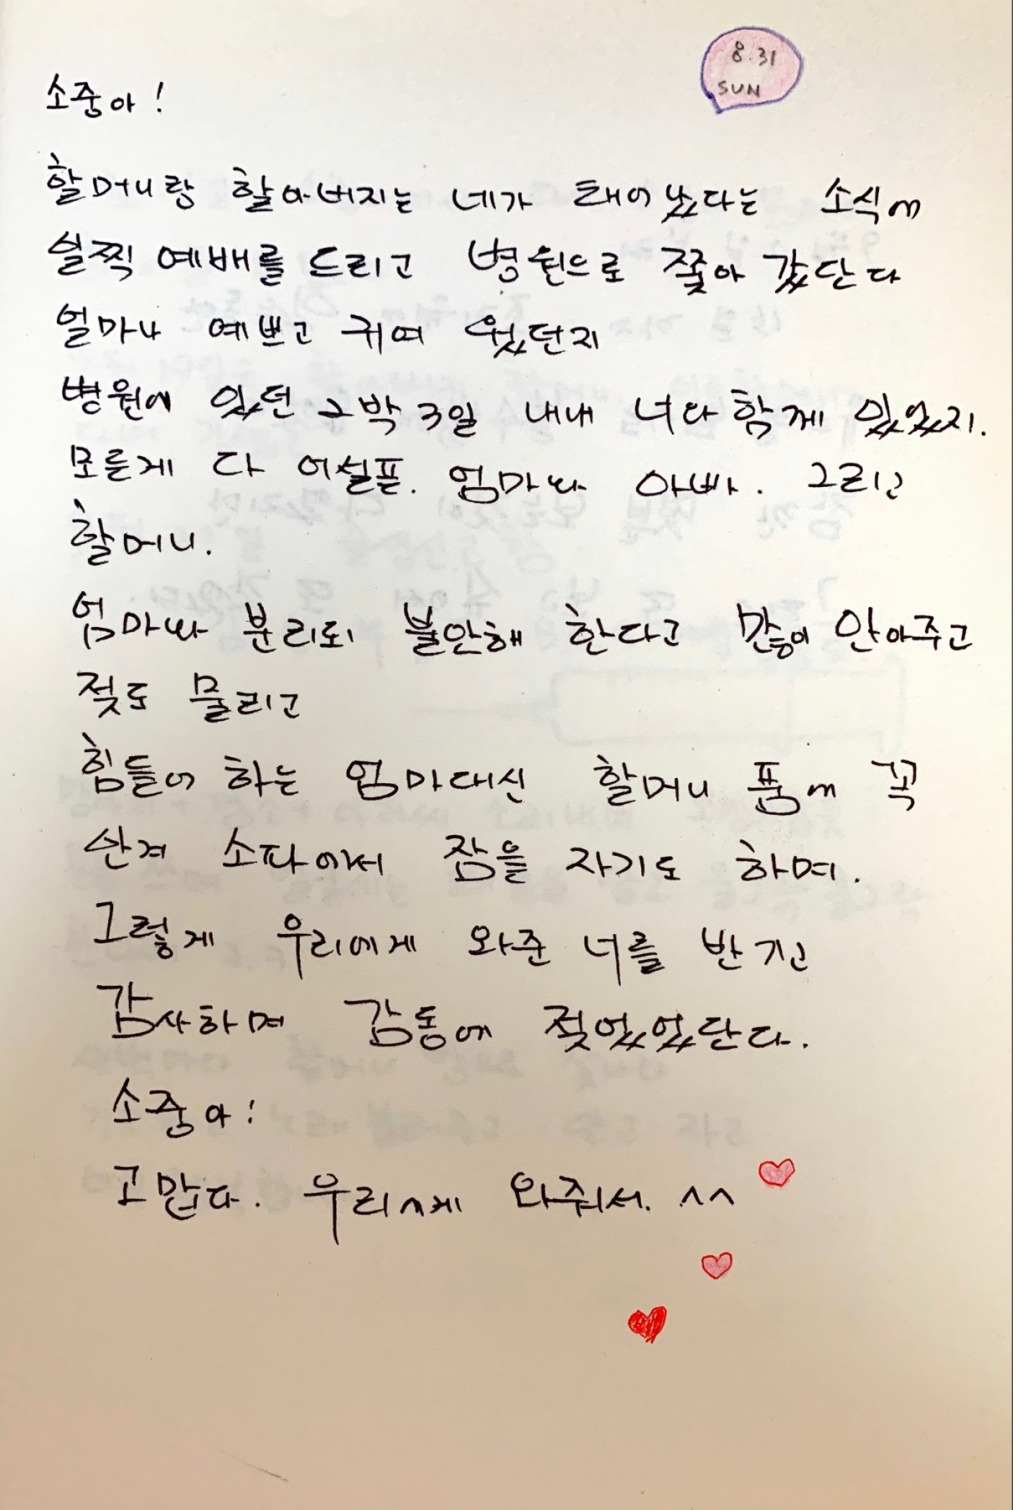 8.31
SUN
소중아!
할머니랑 할아버지는 네가 태어났다는 소식에
일찍 예배를 드리고 병원으로 쫓아 갔단다
얼마나 예쁘고 귀여 웠던지
병원에 있던 2박 3일 내내 너와 함께 있었지.
모든게 다 어설픈. 엄마와 아빠. 그리고
할머니.
엄마와 분리되 불안해 한다고 많이 안아주고
젖도 물리고
힘들어 하는 엄마대신 할머니 품에 꼭
안겨 소파에서 잠을 자기도 하며.
그렇게 우리에게 와준 너를 반기고
감사하며 감동에 젖었었단다.
소중아!
고맙다. 우리에게 와줘서. ^^